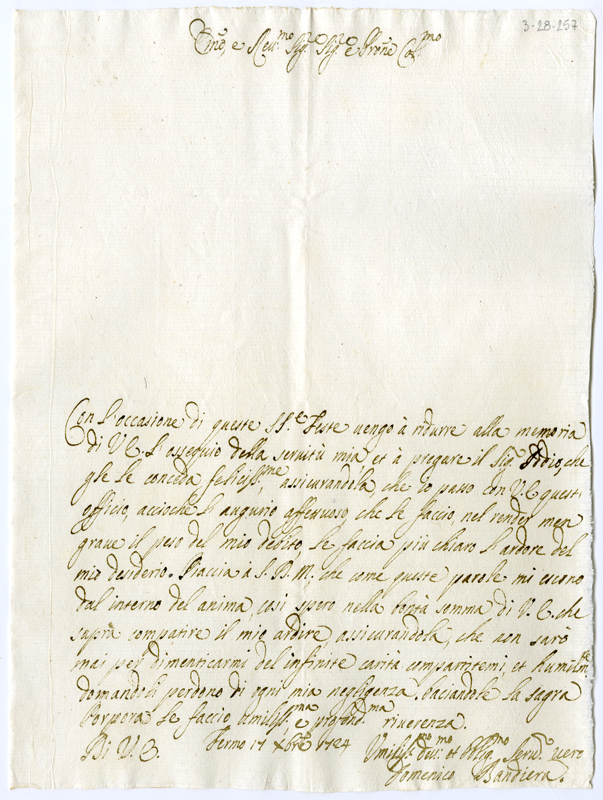 3-28-257
Em̃o, e Reu:mo Sig:re Sig:re e Prõne Col:mo
Con l'occasione di queste SS.e Feste uengo à ridurre alla memoria
di V.E. l'ossequio della seruitù mia, et à pregare il Sig:r Iddio, che
gle le conceda feliciss:me, assicurandola, che io passo con V.E. questi
officio, accioche l'augurio affettuoso che le faccio, nel render men
graue il peso del mio debito, le faccia più chiaro l'ardore del
mio desiderio. Piaccia à S.D.M. che come queste parole mi escono
dal interno del anima, così spero nella bontà somma di V.E. che
saprà compatire il mio ardire, assicurandola, che non sarò
mai per dimenticarmi del infinite carità compartitemi, et humilm:te
domandoli perdono di ogni mia negligenza, baciandole la sagra
Porpora le faccio umiliss:ma e profond:ma riuerenza.
Di V.E. Fermo 17 Xbre 1724 Vmiliss:mo Deu:mo et Oblig:mo Seru:e uero
Domenico Bandiera.